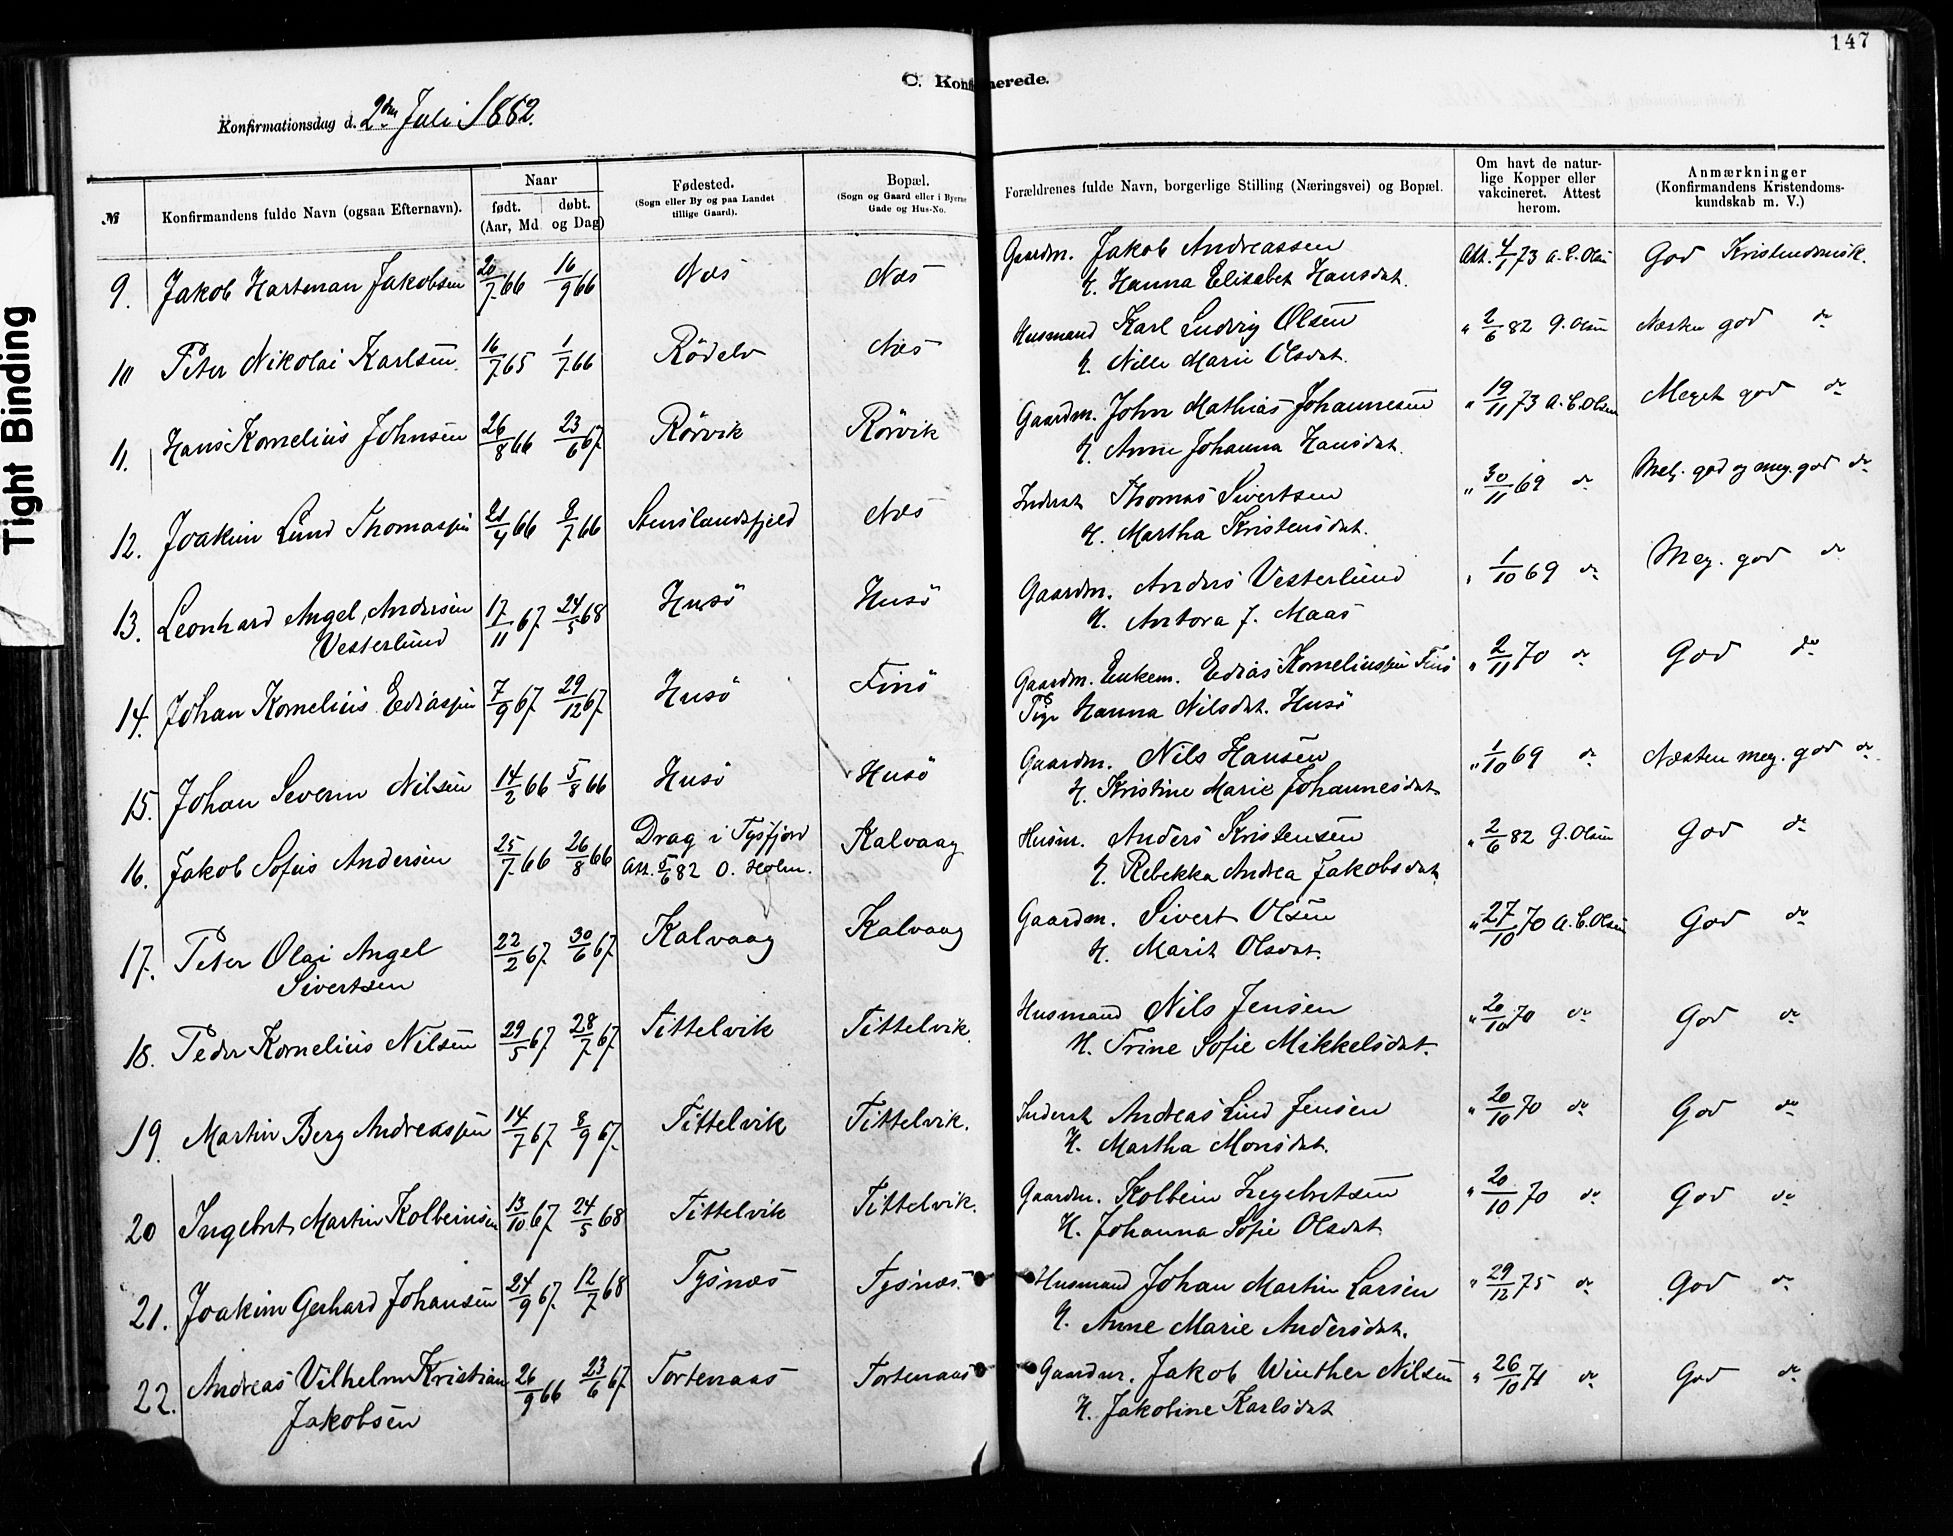 147
C. Konfirmerede.
Konfirmationsdag d. 2den Juli 1882.
№
Konfirmandens fulde Navn (ogsaa Efternavn).
Naar
født. døbt.
(Aar, Md. og Dag)
Fødested.
(Sogn eller By og paa Landet
tillige Gaard).
Bopæl.
(Sogn og Gaard eller i Byerne
Gade og Hus-No.
Forældrenes fulde Navn, borgerlige Stilling (Næringsvei) og Bopæl.
Om havt de natur-
lige Kopper eller
vakcineret. Attest
herom.
Anmærkninger
(Konfirmandens Kristendoms-
kundskab m. V.)
9. Jakob Hartman Jakobsen 20/7 66 16/9 66 Næs Næs Gaardm. Jakob Andreassen Att. 4/1 73 A. C. Olsen God Kristendomsk.
H. Hanna Elisabet Hansdat.
10 Peter Nikolai Karlsen 16/7 65 1/7 66 Rödelv Næs Husmand Karl Ludvig Olsen " 2/6 82 G. Olsen Næsten god do
H. Nille Marie Olsdat.
11. Hans Kornelius Johnsen 26/8 66 23/6 67. Rörvik Rörvik Gaardm. John Mathias Johannesen " 19/11 73 A. C. Olsen Meget god do
H. Anne Johanna Hansdat.
12. Joakim Lund Thomassen 21/4 66 8/7 66 Stenslandsfjeld Næs Inderst Thomas Sivertsen " 30/11 69 do god og meg. god do
H. Martha Kristensdat.
13. Leonhard Angel Andersen 17/11 67. 24/5 68 Husö Husö Gaardm. Anders Vesterlund " 1/10 69 do Meg. god do
Vesterlund H. Antora J. Maas
14. Johan Kornelius Ediassen 7/9 67. 29/12 67. Husö Finö Gaardm. Enkem. Edias Korneliussen Finö " 2/11 70 do God do
Pige Hanna Nilsdat. Husö
15. Johan Severin Nilsen 14/2 66 5/8 66 Husö Husö Gaardm. Nils Hansen " 1/10 69 do Næsten meg. god do
H. Kristine Marie Johannesdat.
16. Jakob Sofus Andersen 25/7 66 26/8 66 Drag i Tysfjord Kalvaag Husm. Anders Kristensen " 2/6 82 G. Olsen God do
Att. 5/6 82 O. Holm. H. Rebekka Andrea Jakobsdat.
17. Peter Olai Angel 22/2 67. 30/6 67. Kalvaag Kalvaag Gaardm. Sivert Olsen " 27/10 70 A. C. Olsen God do
Sivertsen H. Marit Olsdat.
18. Peder Kornelius Nilsen 29/5 67. 28/7 67. Tittelvik Tittelvik. Husmand Nils Jensen " 20/10 70 do God do
H. Trine Sofie Mikkelsdat.
19. Martin Berg Andreassen 14/7 67. 8/9 67. Tittelvik Tittelvik. Inderst Andreas Lind Jensen " 20/10 70 do God do
H. Martha Monsdat.
20 Ingebret Martin Kolbeinsen 13/10 67. 24/5 68 Tittelvik Tittelvik. Gaardm. Kolbein Ingebretsen " 20/10 70 do God do
H. Johanna Sofie Olsdat.
21. Joakim Gerhard Johansen 24/9 67. 12/7 68 Tysnæs Tysnæs. Husmand Johan Martin Larsen " 29/12 75 do God do
H. Anne Marie Andersdat.
22. Andreas Vilhelm Kristian 26/9 66 23/6 67. Tortenaas Tortenaas Gaardm. Jakob Winther Nilsen " 26/10 71 do God do
Jakobsen H. Jakobine Karlsdat
Tight Binding